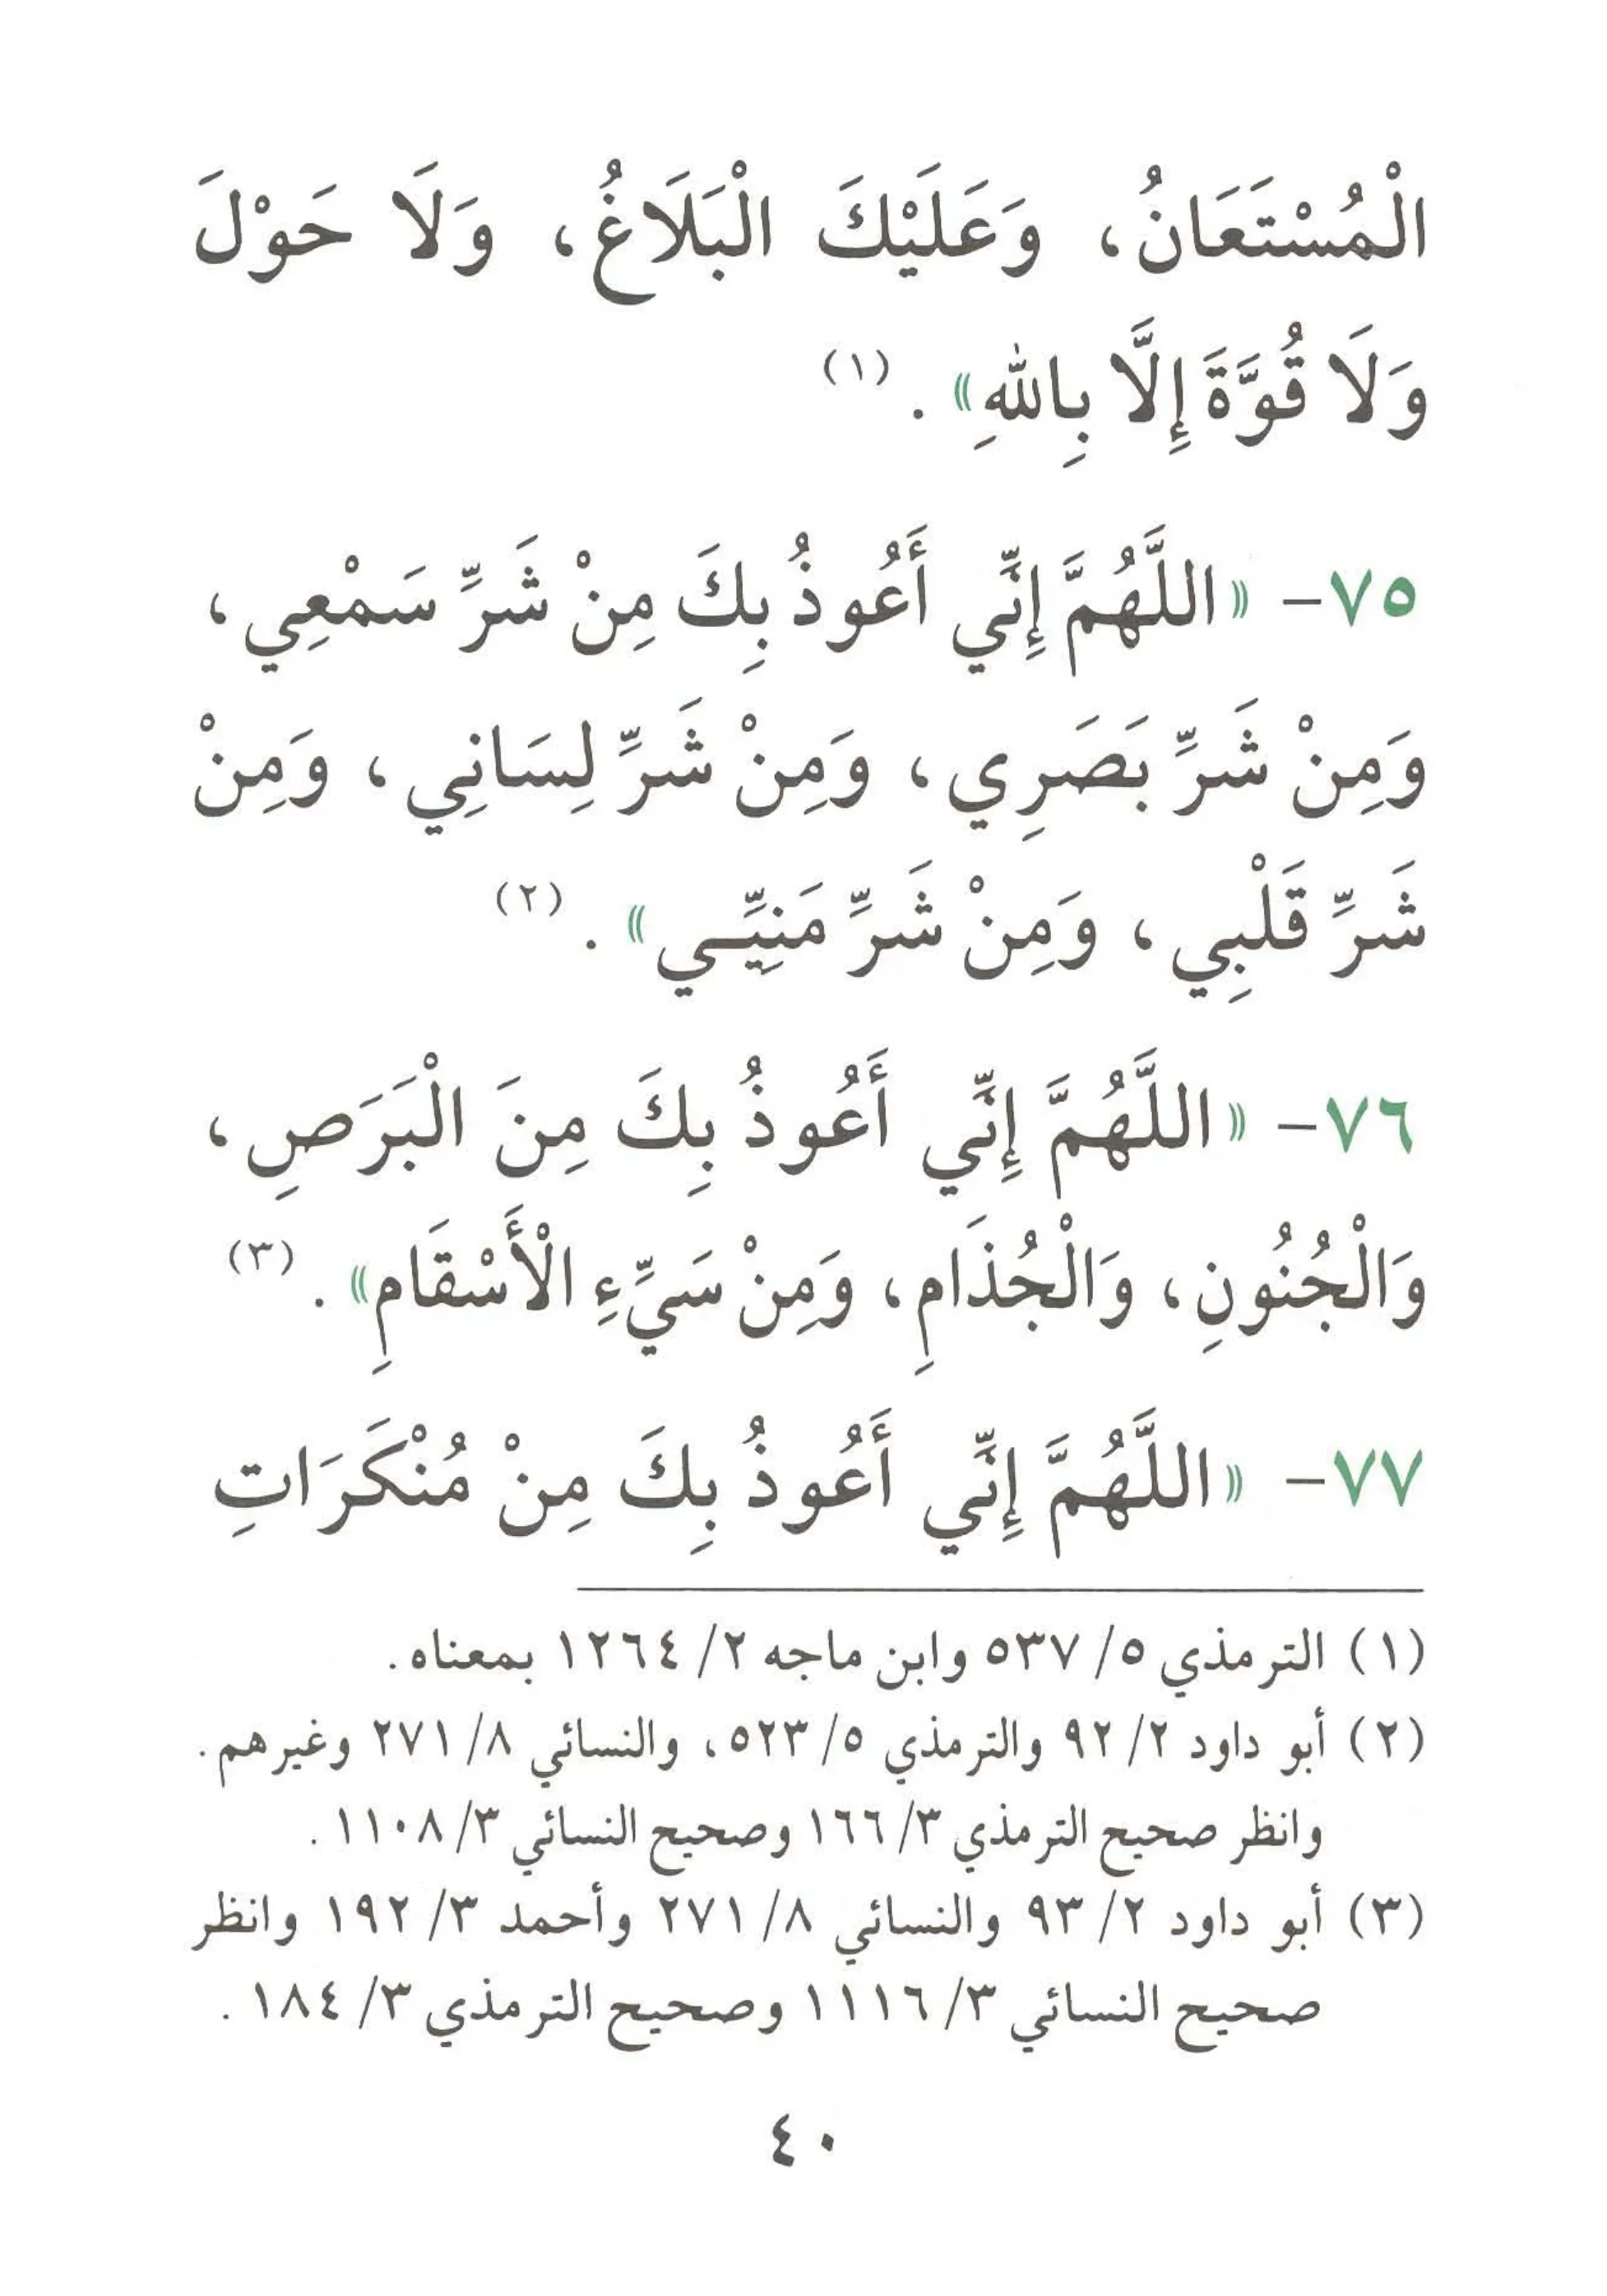 الْمُسْتَعَانُ، وَعَلَيْكَ الْبَلَاغُ، وَلَا حَوْلَ
وَلَا قُوَّةَ إِلَّا بِاللهِ». (١)
٧٥- «اللَّهُمَّ إِنِّي أَعُوذُ بِكَ مِنْ شَرِّ سَمْعِي،
وَمِنْ شَرِّ بَصَرِي، وَمِنْ شَرِّ لِسَانِي، وَمِنْ
شَرِّ قَلْبِي، وَمِنْ شَرِّ مَنِيِّـي». (٢)
٧٦- «اللَّهُمَّ إِنِّي أَعُوذُ بِكَ مِنَ الْبَرَصِ،
وَالْجُنُونِ، وَالْجُذَامِ، وَمِنْ سَيِّءِ الْأَسْقَامِ». (٣)
٧٧- «اللَّهُمَّ إِنِّي أَعُوذُ بِكَ مِنْ مُنْكَرَاتِ
(١) الترمذي ٥/ ٥٣٧ وابن ماجه ٢/ ١٢٦٤ بمعناه.
(٢) أبو داود ٢/ ٩٢ والترمذي ٥/ ٥٢٣، والنسائي ٨/ ٢٧١ وغيرهم.
وانظر صحيح الترمذي ٣/ ١٦٦ وصحيح النسائي ٣/ ١١٠٨.
(٣) أبو داود ٢/ ٩٣ والنسائي ٨/ ٢٧١ وأحمد ٣/ ١٩٢ وانظر
صحيح النسائي ٣/ ١١١٦ وصحيح الترمذي ٣/ ١٨٤.
٤٠